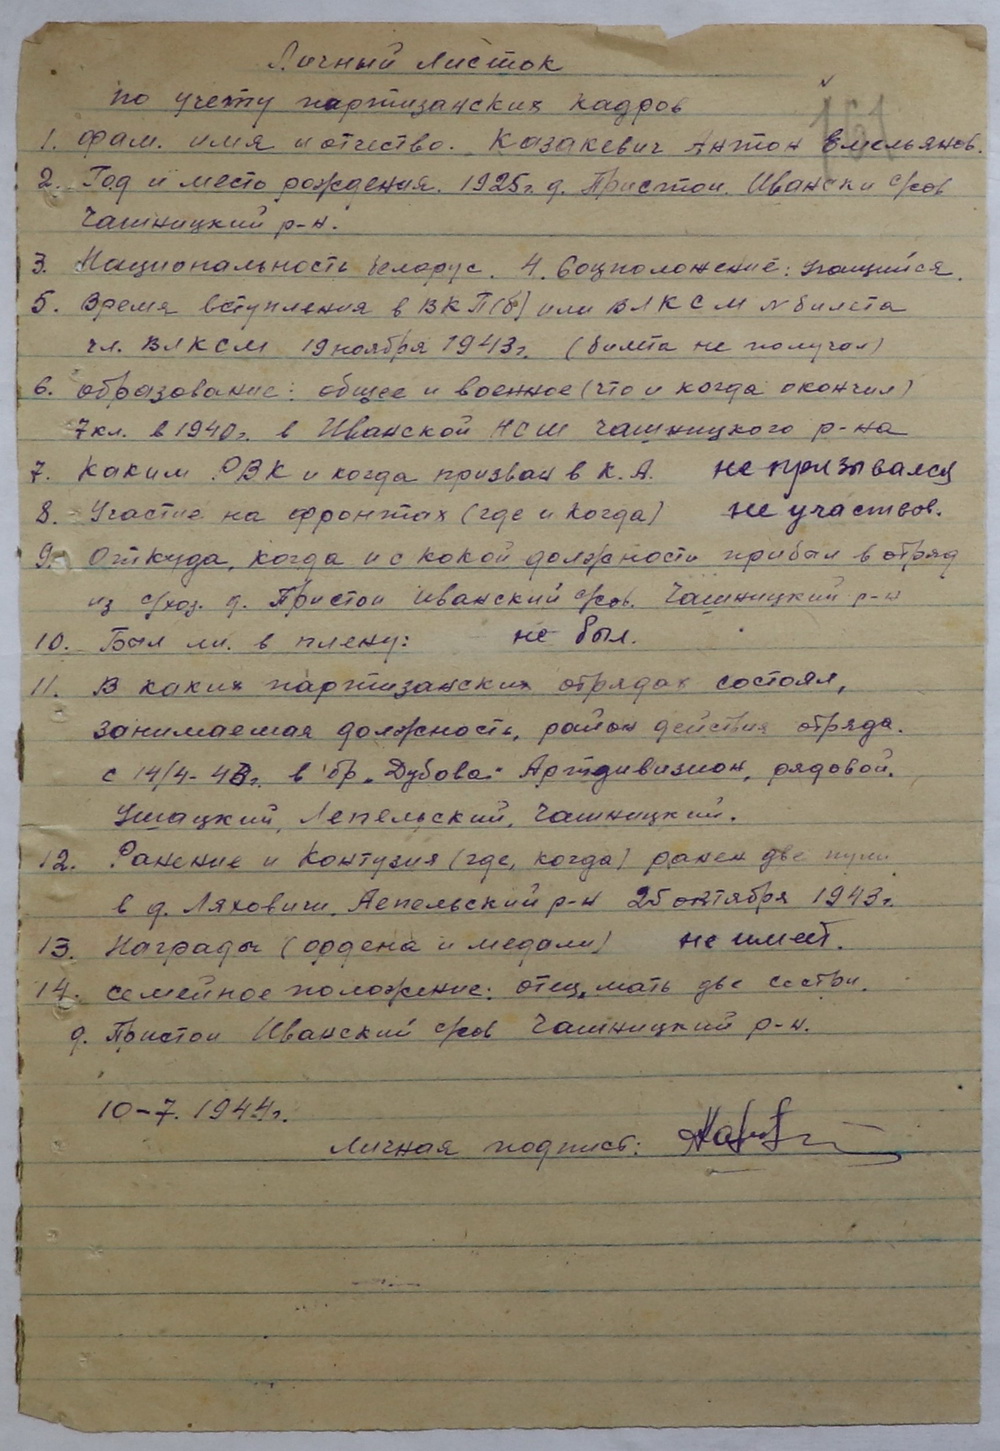 Личный листок
по учету партизанских кадров
161
1. Фам. имя и отчество. Казакевич Антон Емельянов.
2. Год и место рождения. 1925г. д. Пристои. Ивански с/сов
Чашницкий р-н.
3. Национальность белорус. 4. Соцположение: учащийся.
5. Время вступления в ВКП(б) или ВЛКСМ № билета
чл. ВЛКСМ 19 ноября 1943г. (билета не получал)
6. образование: общее и военное (что и когда окончил)
7кл. в 1940г. в Иванской НСШ Чашницкого р-на
7. Каким РВК и когда призван в К.А. не призывался
8. Участие на фронтах (где и когда) не участвов.
9. Откуда, когда и с какой должности прибыл в отряд
из с/хоз. д. Пристои Иванский с/сов. Чашницкий р-н
10. Был ли в плену: не был.
11. В каких партизанских отрядах состоял,
занимаемая должность, район действия отряда.
с 14/4-43г. в бр. "Дубова" Артдивизион, рядовой.
Ушацкий, Лепельский, Чашницкий.
12. Ранение и Контузия (где, когда) ранен две пули
в д. Ляховичи, Лепельский р-н 25 октября 1943г.
13. Награды (ордена и медали) не имеет.
14. семейное положение: отец, мать две сестры.
д. Пристои Иванский с/сов Чашницкий р-н.
10-7. 1944г.
Личная подпись: